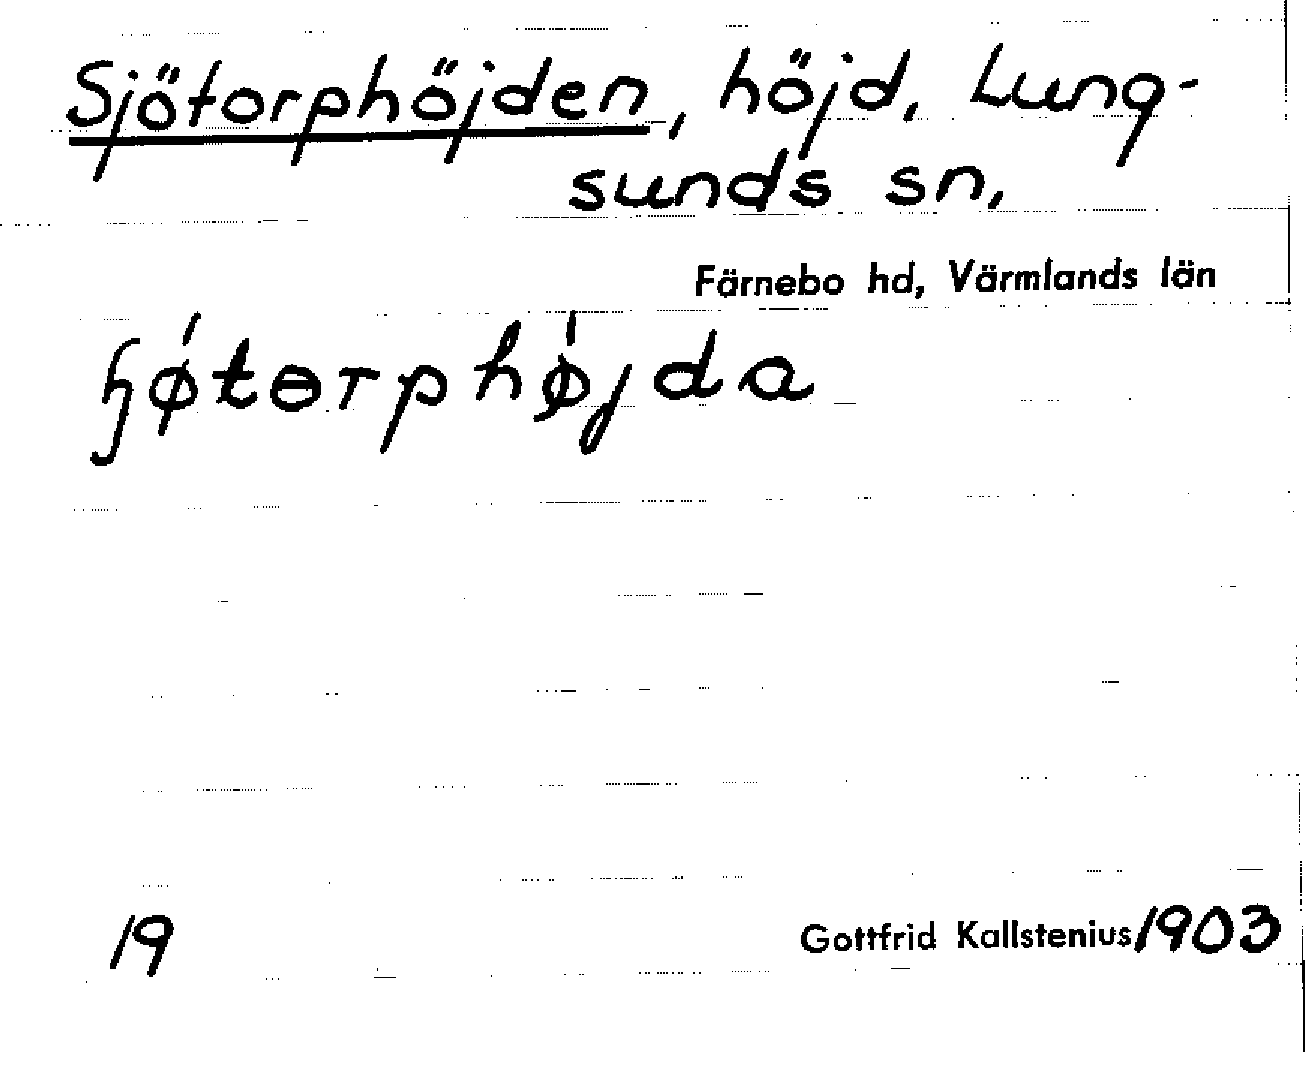 Sjötorphöjden, höjd, Lung-
sunds sn,
Färnebo hd, Värmlands län
ɧǿtɵrphǿjda
19
Gottfrid Kallstenius 1903